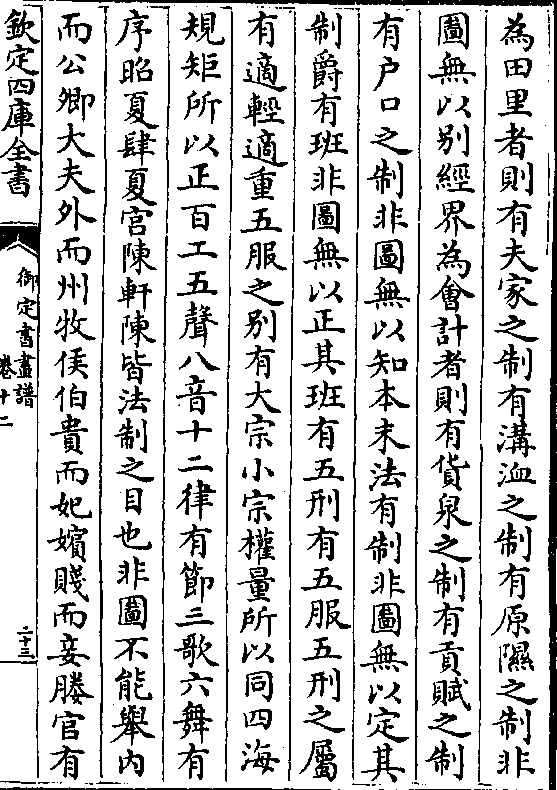 為田里者則有夫家之制有溝洫之制有原隰之制非
圖無以别經界為會計者則有貨泉之制有貢賦之制
有户口之制非圖無以知本末法有制非圖無以定其
制爵有班非圖無以正其班有五刑有五服五刑之屬
有適輕適重五服之别有大宗小宗權量所以同四海
規矩所以正百工五聲八音十二律有節三歌六舞有
序昭夏肆夏宮陳軒陳皆法制之目也非圖不能舉内
而公卿大夫外而州牧侯伯貴而妃嬪賤而妾媵官有
欽定四庫全書
御定書畫譜
卷十二
二十三